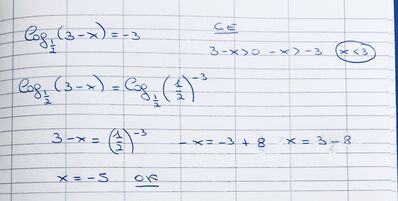 log_{1/2} (3-x) = -3 CE
3-x>0 -x>-3 x<3
log_{1/2} (3-x) = log_{1/2} (1/2)^{-3}
3-x = (1/2)^{-3} -x = -3+8 x = 3-8
x = -5 OK